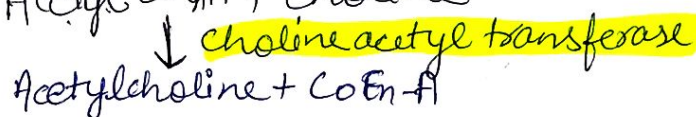 choline acetyl transferase
Acetylcholine + CoEn-A